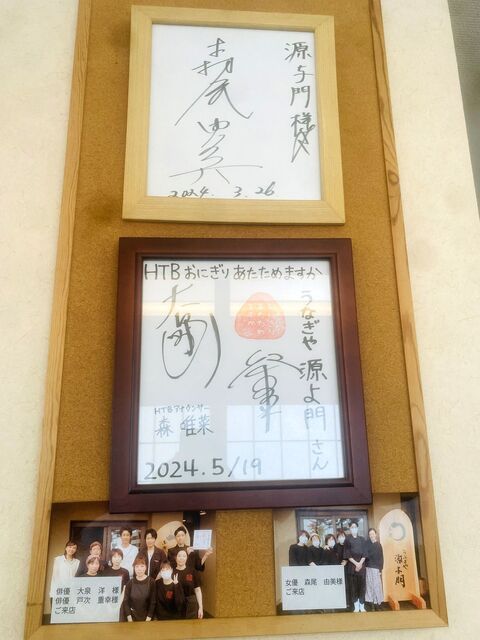 源与門様
森尾由美
2024. 3. 26
HTBおにぎりあたためますか
うなぎや 源よ門さん
HTBアナウンサー
森 唯菜
2024.5/19
俳優 大泉 洋 様
俳優 戸次 重幸様
ご来店
女優 森尾 由美様
ご来店
うなぎ
源与門